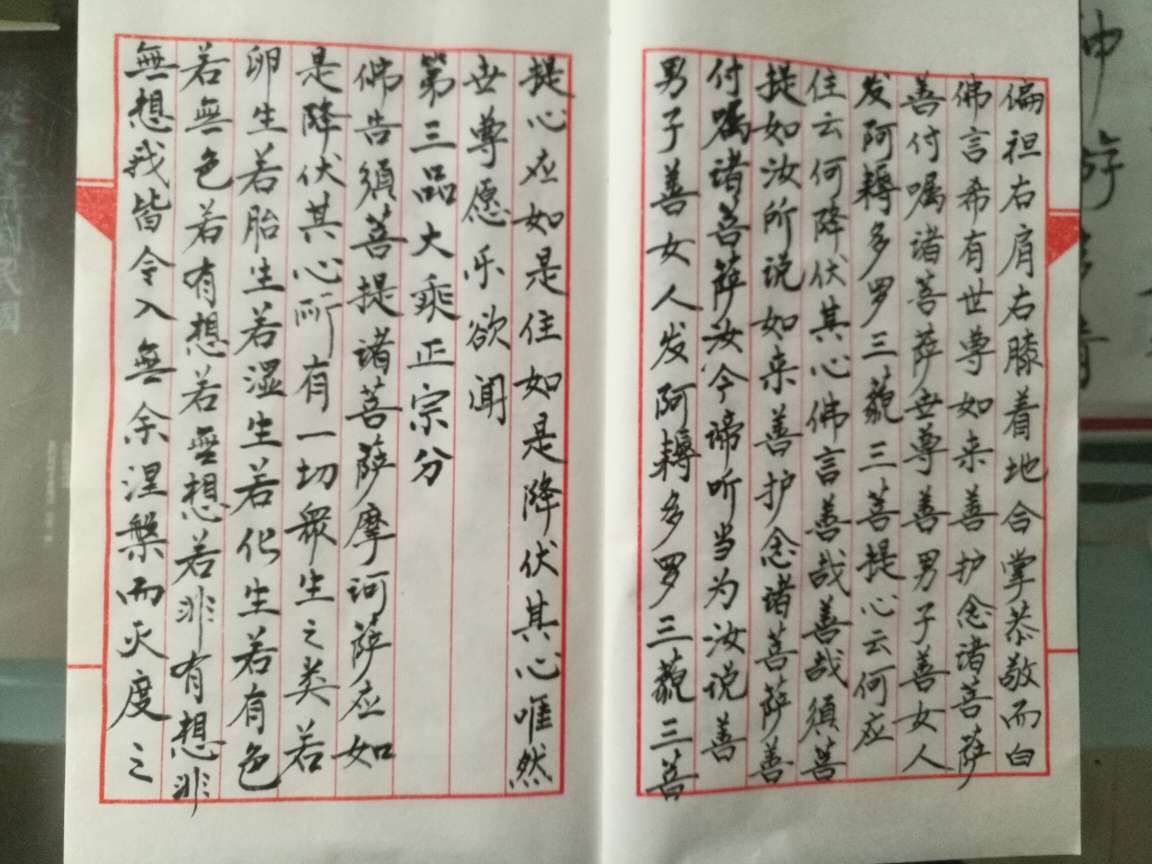 偏袒右肩右膝着地合掌恭敬而白
佛言希有世尊如来善护念诸菩萨
善付嘱诸菩萨世尊善男子善女人
发阿耨多罗三藐三菩提心云何应
住云何降伏其心佛言善哉善哉須菩
提如汝所说如来善护念诸菩萨善
付嘱诸菩萨汝今谛听当为汝说善
男子善女人发阿耨多罗三藐三菩
提心应如是住如是降伏其心唯然
世尊愿乐欲闻
第三品大乘正宗分
佛告須菩提诸菩萨摩诃萨应如
是降伏其心所有一切衆生之类若
卵生若胎生若湿生若化生若有色
若無色若有想若無想若非有想非
無想我皆令入無余涅槃而灭度之
神游
國